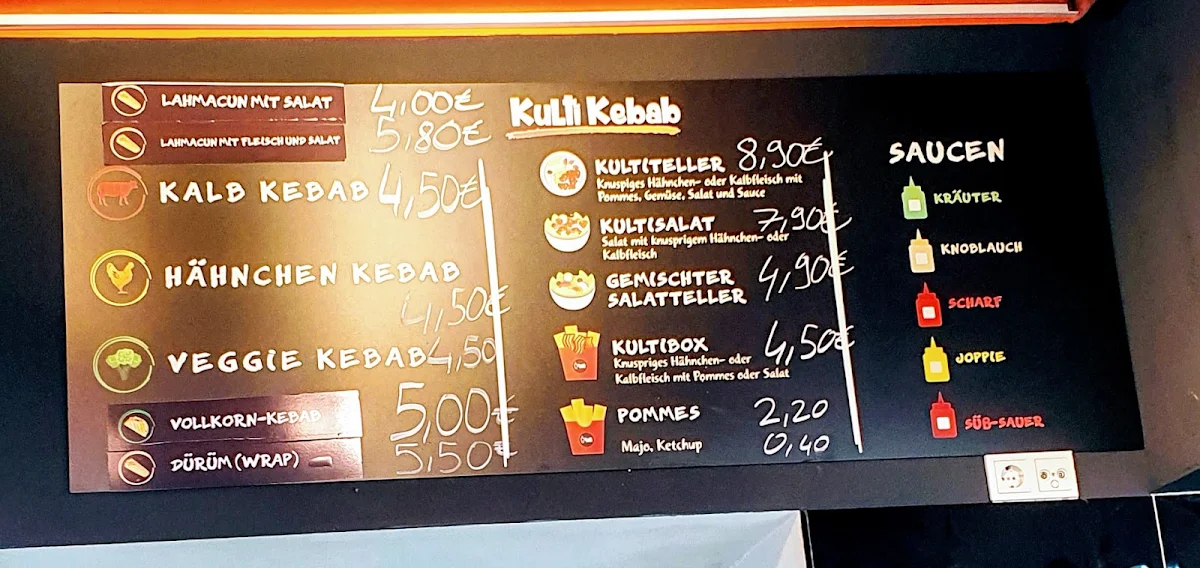 LAHMACUN MIT SALAT 4,00€
LAHMACUN MIT FLEISCH UND SALAT 5,80€
KALB KEBAB 4,50€
HÄHNCHEN KEBAB
4,50€
VEGGIE KEBAB 4,50
VOLLKORN-KEBAB 5,00€
DÜRÜM (WRAP) 5,50€
Kulti Kebab
KULTITELLER 8,90€
Knuspiges Hähnchen- oder Kalbfleisch mit
Pommes, Gemüse, Salat und Sauce
KULTISALAT 7,90€
Salat mit knusprigem Hähnchen- oder
Kalbfleisch
GEMISCHTER 4,90€
SALATTELLER
KULTIBOX 4,50€
Knuspriges Hähnchen- oder
Kalbfleisch mit Pommes oder Salat
POMMES 2,20
Majo, Ketchup 0,40
SAUCEN
KRÄUTER
KNOBLAUCH
SCHARF
JOPPIE
SÜß-SAUER